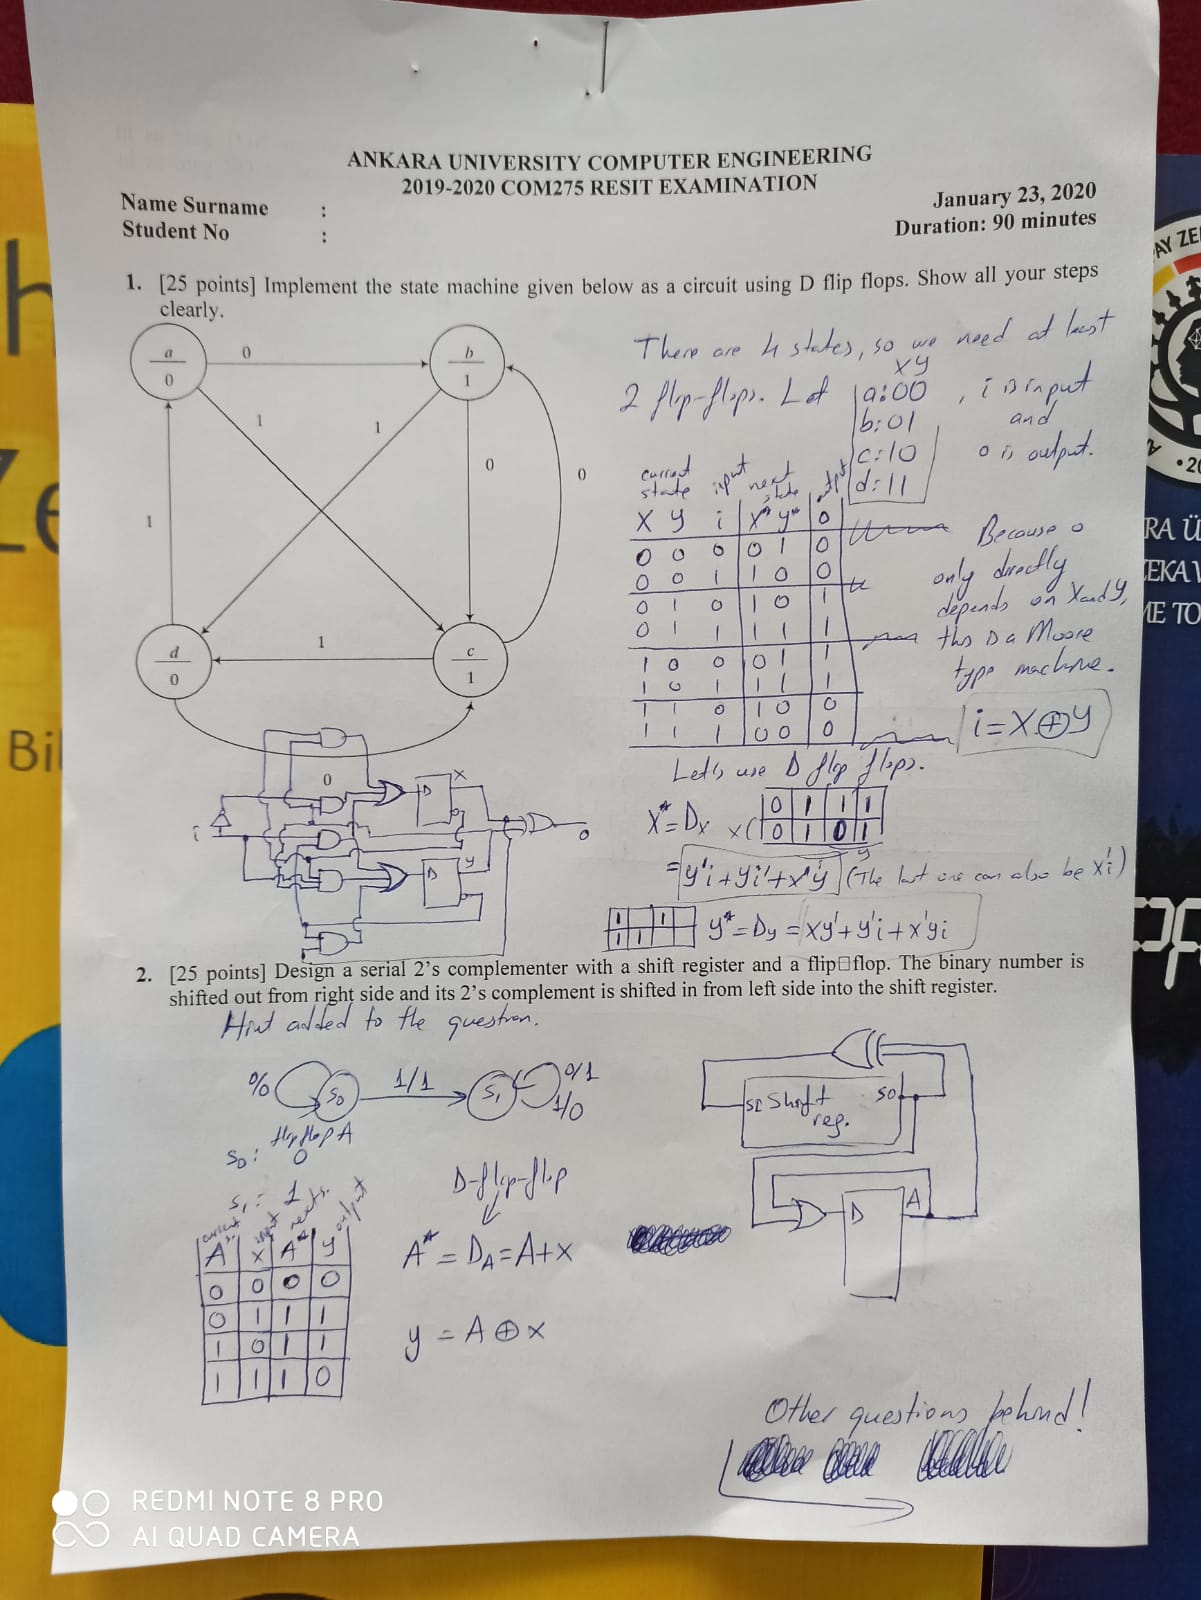 ANKARA UNIVERSITY COMPUTER ENGINEERING
2019-2020 COM275 RESIT EXAMINATION
Name Surname :
Student No :
January 23, 2020
Duration: 90 minutes
1. [25 points] Implement the state machine given below as a circuit using D flip flops. Show all your steps
clearly.
a
0
b
1
d
0
c
1
0
1
1
0
0
1
1
0
There are 4 states, so we need at least
2 flip-flops. Let
XY
a:00
b:01
c:10
d:11
, i is input
and
o is output.
current state input next state output
X Y i X* Y* O
0 0 0 0 1 0
0 0 1 1 0 0
0 1 0 1 0 1
0 1 1 1 1 1
1 0 0 0 1 1
1 0 1 1 1 1
1 1 0 1 0 0
1 1 1 0 0 0
Because o
only directly
depends on X and Y,
this is a Moore
type machine.
i=X⊕Y
Let's use D flip flops.
X*=Dx
x
0 1 1 1
0 1 0 1
y
=y'i+yi'+x'y (The last one can also be x'i)
1 1
1 1
y*=Dy=xy'+y'i+x'yi
i
D
X
D
y
o
2. [25 points] Design a serial 2's complementer with a shift register and a flip□flop. The binary number is
shifted out from right side and its 2's complement is shifted in from left side into the shift register.
Hint added to the question.
0/0
S0
1/1
S1
0/1
1/0
flip flop A
S0: 0
S1: 1
current s. input next s. output
A x A* y
0 0 0 0
0 1 1 1
1 0 1 1
1 1 1 0
D-flip-flop
A* = DA=A+x
y = A⊕x
SI Shift
reg.
SO
D
A
Other questions behind!
REDMI NOTE 8 PRO
AI QUAD CAMERA
Bi
AY ZE
•20
RA Ü
ZEKA
ME TO